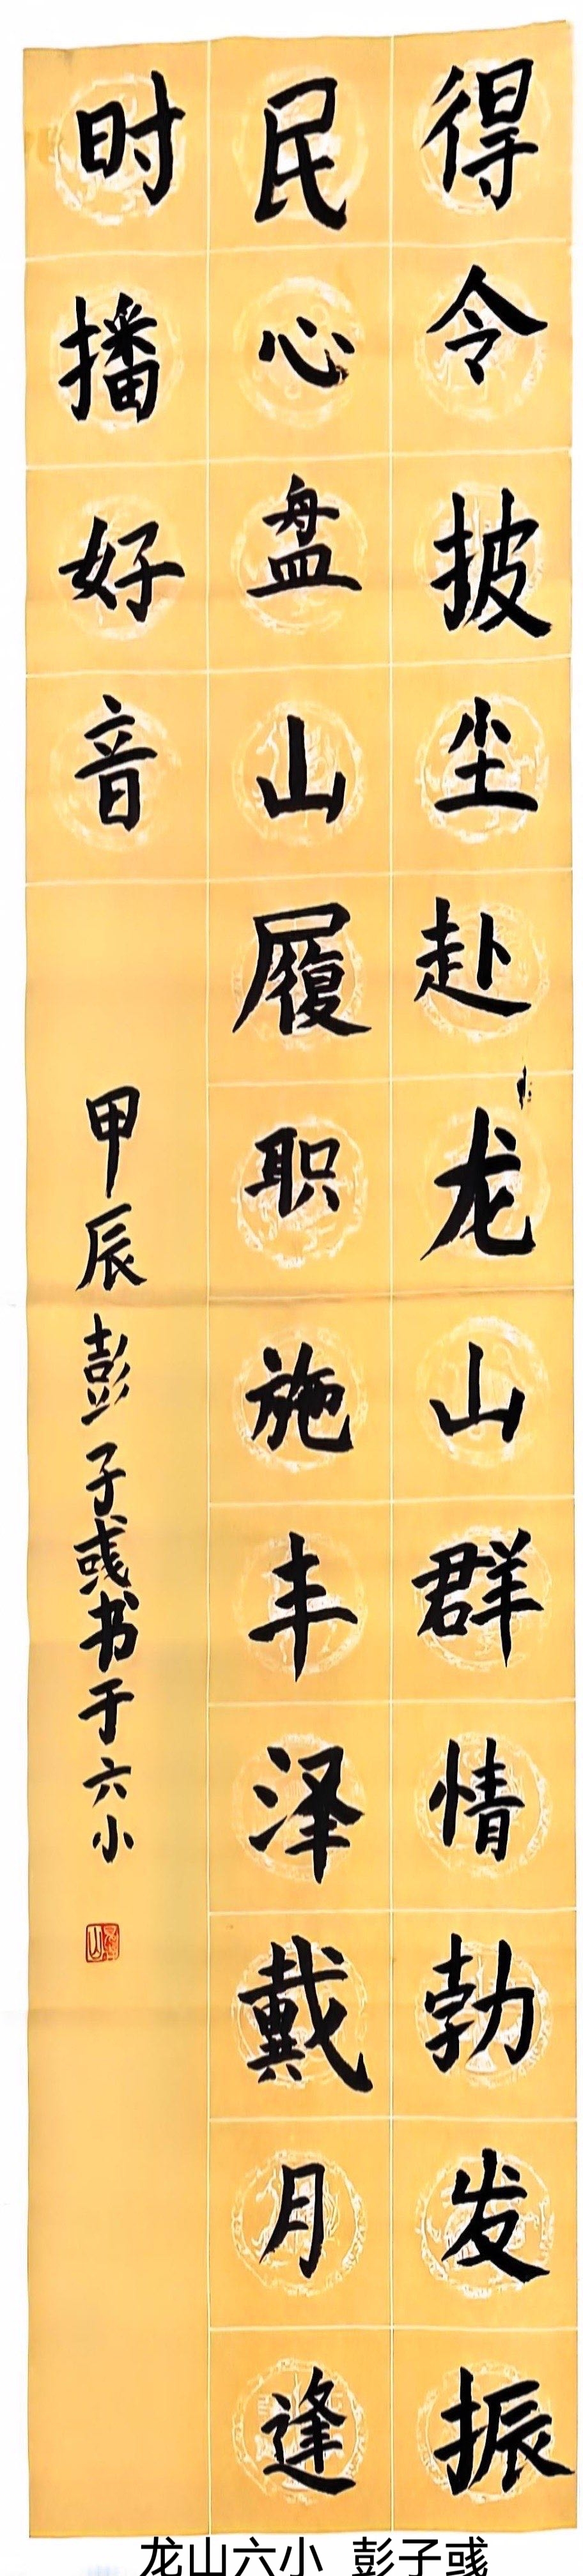 得令披尘赴龙山群情勃发振
民心盘山履职施丰泽戴月逢
时播好音
甲辰彭子彧书于六小
龙山六小 彭子彧